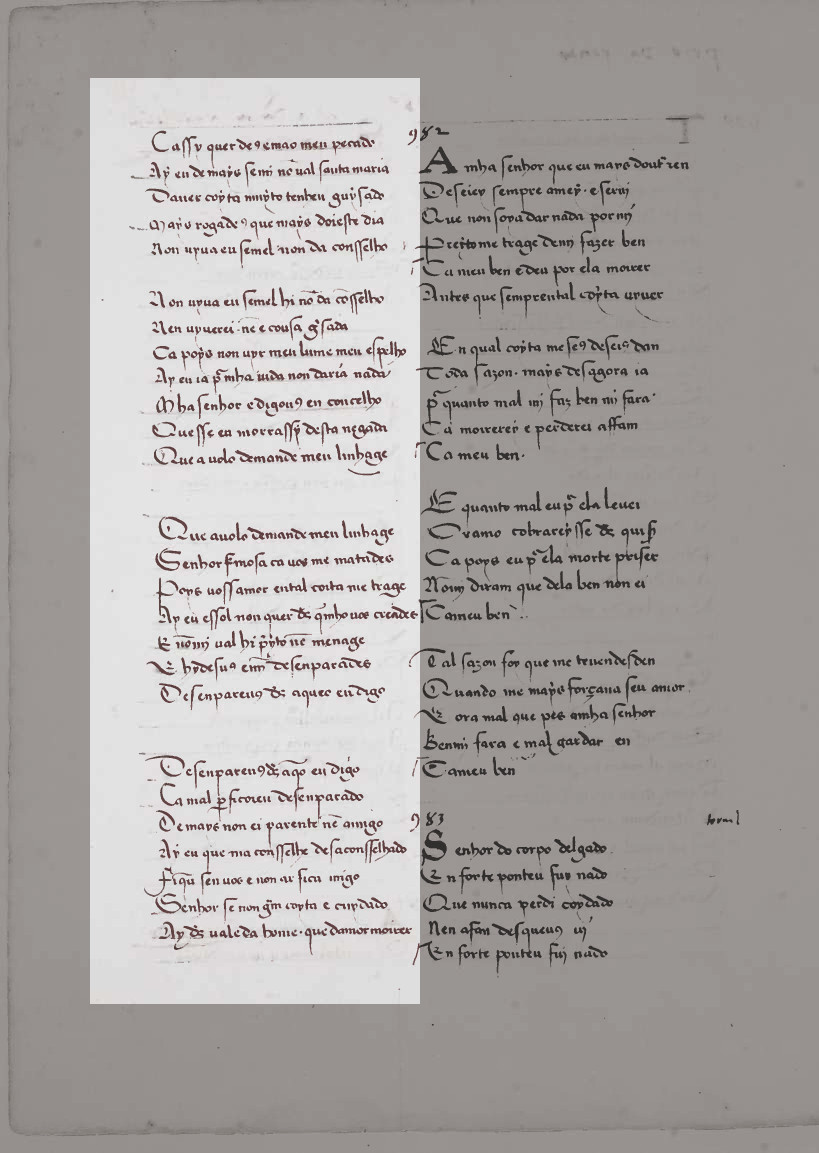 Cassy quer de9 e mao meu pecado
Ay eu de mays se mi nō ual santa maria
Dauer coyta muyto tenheu guysado
Mays rogade9 que mays doieste dia
Non uyua eu semel non da consselho
Non uyua eu semel hi nō da cōsselho
Nen uyuerei nē e cousa gisada
Ca poys non uyr meu lume meu espelho
Ay eu ia pa mha uida non daria nada
Mha senhor e digou9 en concelho
Que sse eu morrassy desta negada
Que a uolo demande meu linhage
Que auolo demande meu linhage
Senhor fremosa ca uos me matades
Poys uossamor ental coita me trage
Ay eu e ssol non quer d's qmho uos creades
E nō mi ual hi pryto nē menage
E hydesu9 e im desenparades
Desenpareu9 d's aqueo eu digo
Desenpareu9 d's a qō eu digo
Ca mal per ficoieu desenparado
De mays non ei parente nē amigo
Ay eu que ma consselhe desaconsselhado
Fiqu sen uos e non ar fica migo
Senhor se non gm coyta e cuydado
Ay d's ual e da home que damor moirer
982
A mha senhor que eu mays doutren
Deseiey sempre amey e serui
Que non soya dar nada por mi
Preyto me trage demi fazer ben
Ca meu ben e deu por ela moirer
Antes que semprental coyta uyuer
En qual coyta me se9 deseio9 dan
Toda sazon mays desagora ia
pr quanto mal mi faz ben mi fara
Ca moirerey e perderei affam
Ca meu ben
E quanto mal eu pr ela leuei
Oramo cobrareysse d's quiser
Ca poys eu pr ela morte priser
Nomi diram que dela ben non ei
Ca meu ben
Tal sazon foy que me teuen desden
Quando me mays forçaua seu amor
E ora mal que pes amha senhor
Benmi fara e mal gardar en
Ca meu ben
983
Senhor do corpo delgado
En forte ponteu fuy nado
Que nunca perdi coydado
Nen afan desqueu9 ui
En forte ponteu fui nado